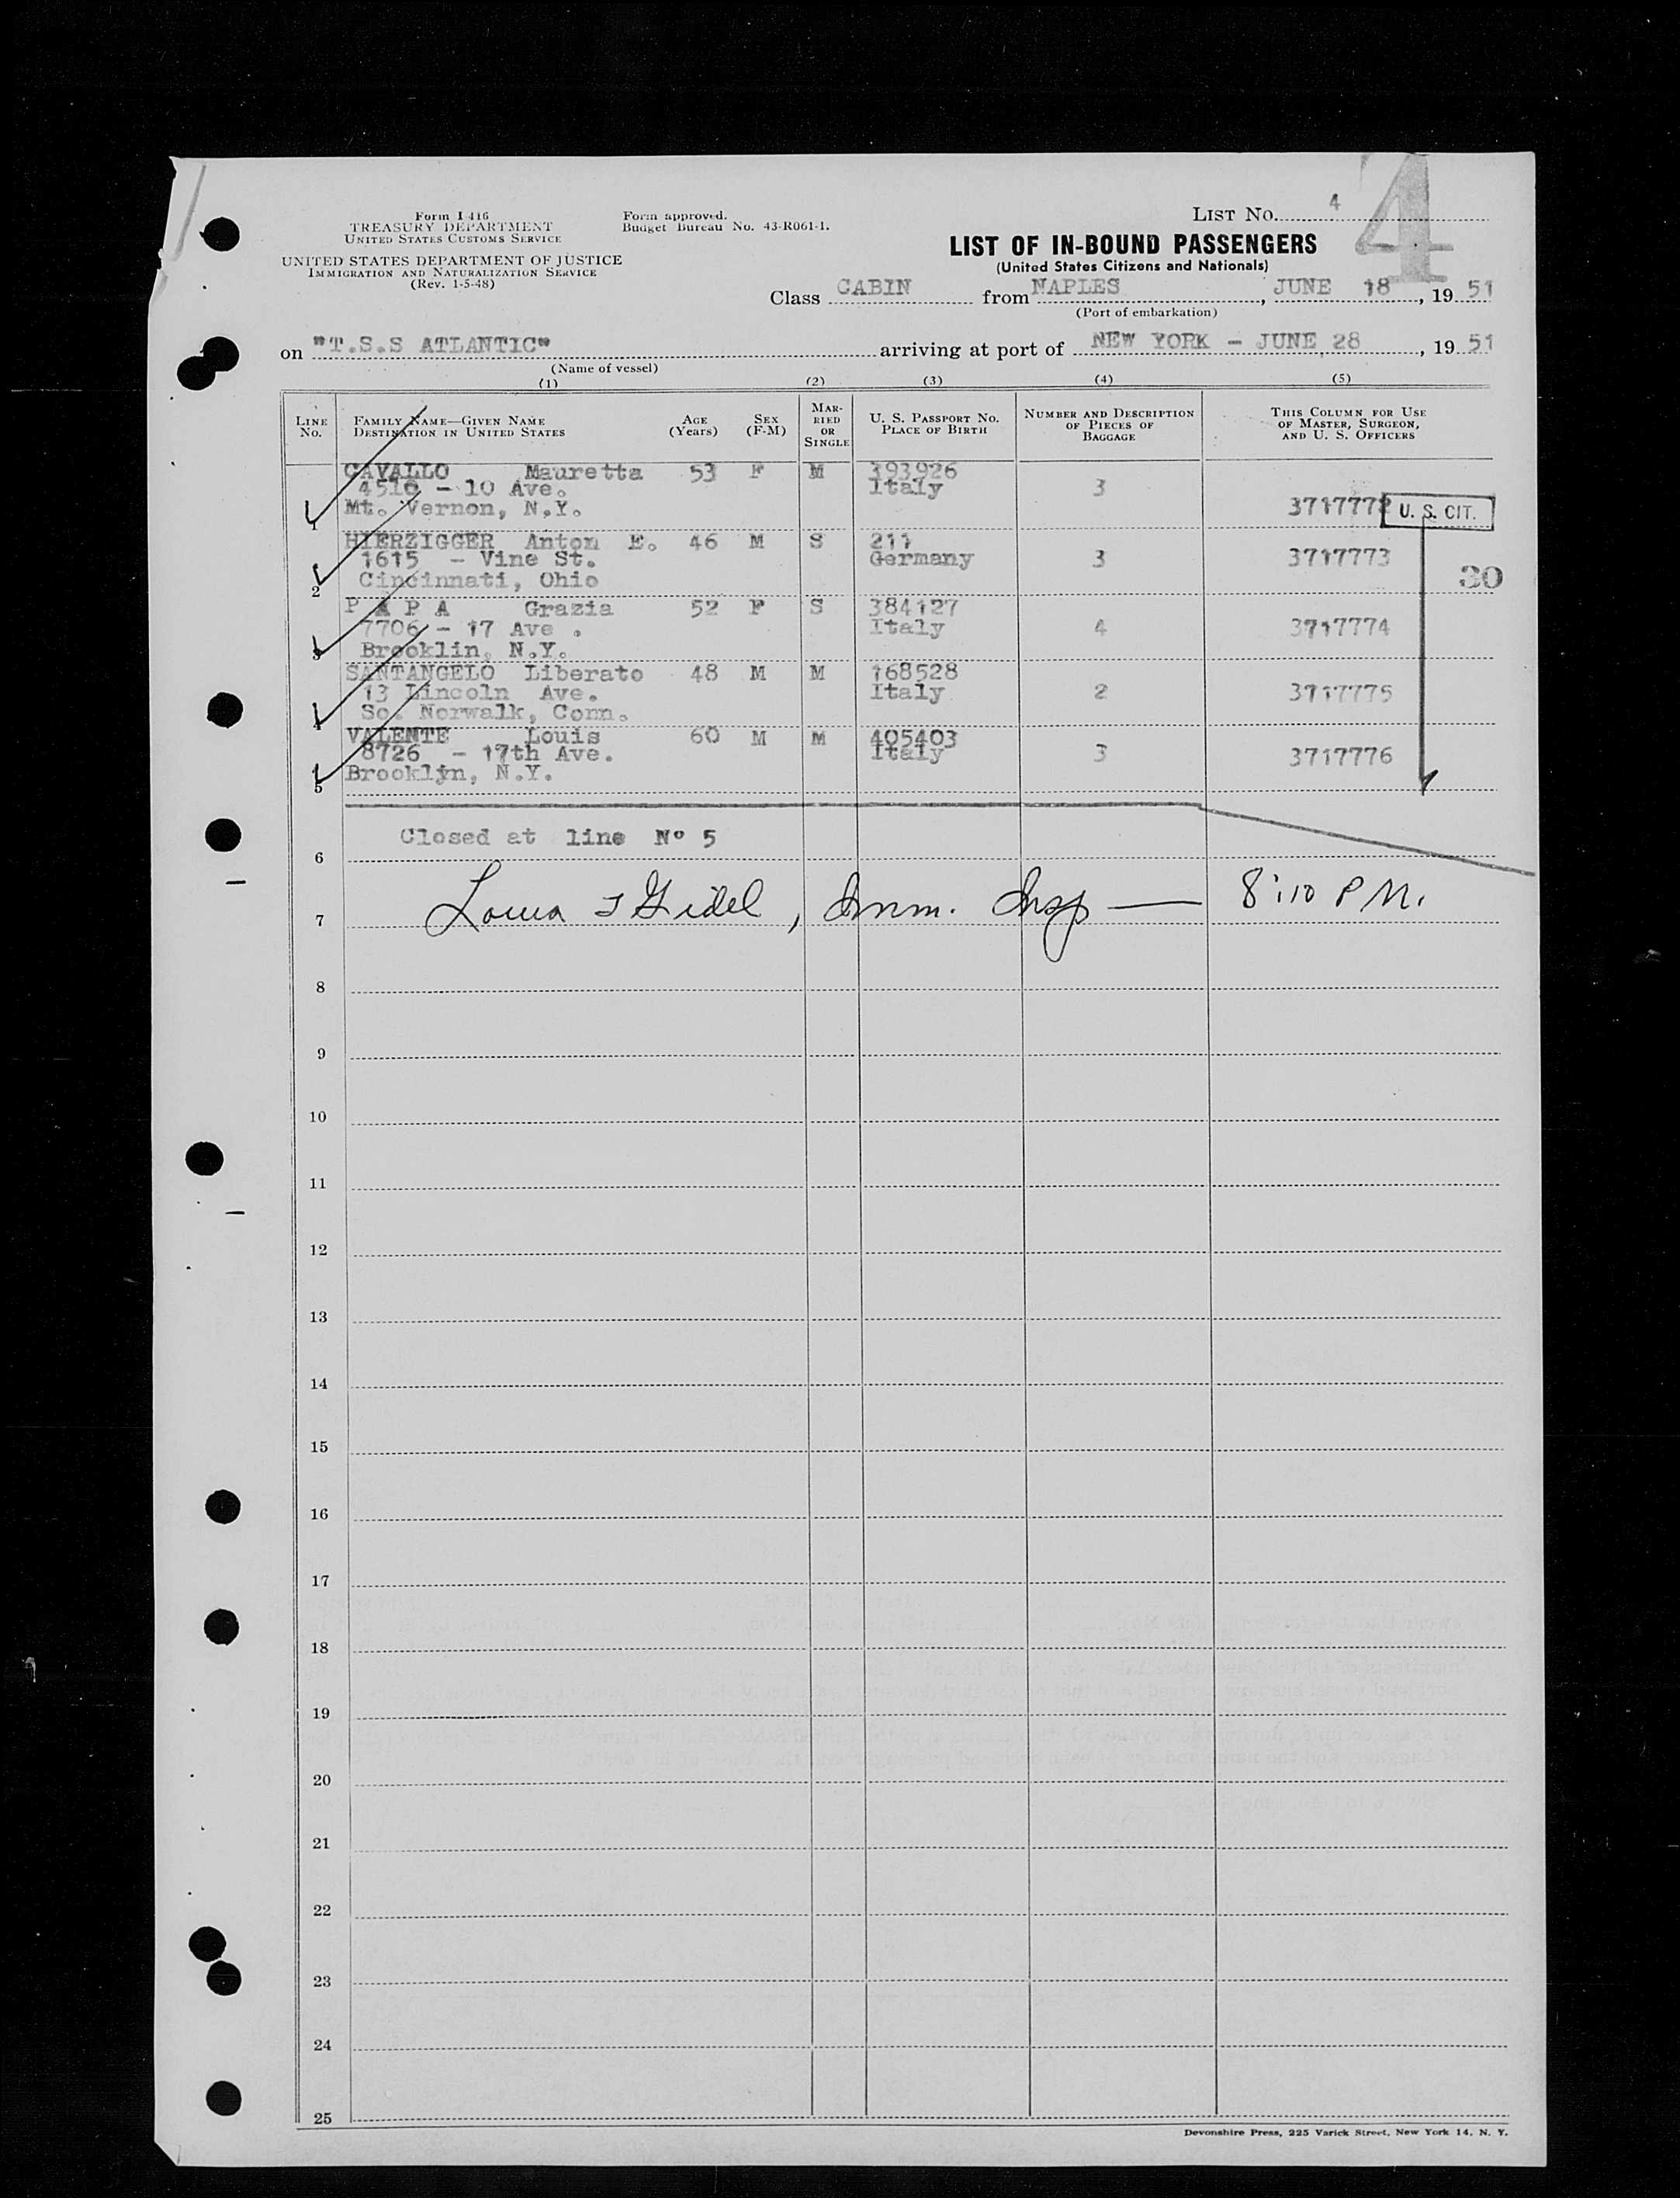 Form I 416
TREASURY DEPARTMENT
UNITED STATES CUSTOMS SERVICE
UNITED STATES DEPARTMENT OF JUSTICE
IMMIGRATION AND NATURALIZATION SERVICE
(Rev. 1-5-48)
Form approved.
Budget Bureau No. 43-R061-1.
LIST NO. 4
4
LIST OF IN-BOUND PASSENGERS
(United States Citizens and Nationals)
Class CABIN from NAPLES, JUNE 18, 1951
(Port of embarkation)
on "T.S.S ATLANTIC" arriving at port of NEW YORK - JUNE 28, 1951
(Name of vessel)
(1) (2) (3) (4) (5)
LINE NO. FAMILY NAME—GIVEN NAME DESTINATION IN UNITED STATES AGE (Years) SEX (F-M) MARRIED OR SINGLE U. S. PASSPORT NO. PLACE OF BIRTH NUMBER AND DESCRIPTION OF PIECES OF BAGGAGE THIS COLUMN FOR USE OF MASTER, SURGEON, AND U. S. OFFICERS
CAVALLO Mauretta 53 F M 393926
4516 - 10 Ave. Italy 3
1 Mt. Vernon, N.Y. 3717772 U. S. CIT.
HIERZIGGER Anton E. 46 M S 211
1615 - Vine St. Germany 3 3717773
2 Cincinnati, Ohio 30
P A P A Grazia 52 F S 384127
7706 - 17 Ave . Italy 4 3717774
3 Brooklin, N.Y.
SANTANGELO Liberato 48 M M 168528
13 Lincoln Ave. Italy 2 3717775
4 So. Norwalk, Conn.
VALENTE Louis 60 M M 405403
8726 - 17th Ave. Italy 3 3717776
5 Brooklyn, N.Y.
Closed at line Nº 5
6
7 Gidel, Imm. Insp — 8:10 P.M.
8
9
10
11
12
13
14
15
16
17
18
19
20
21
22
23
24
25
Devonshire Press, 225 Varick Street, New York 14, N. Y.